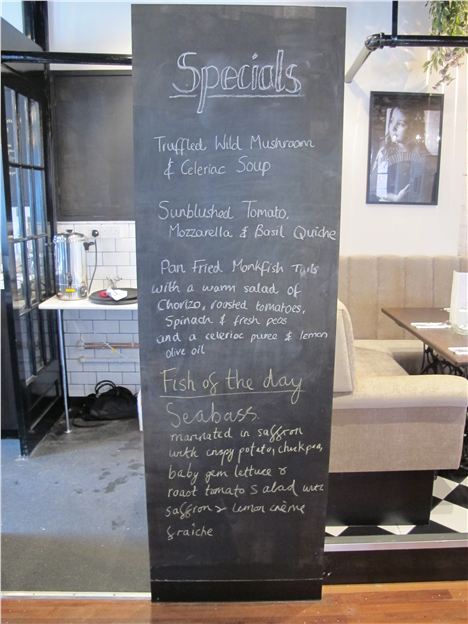 Specials
Truffled Wild Mushroom
& Celeriac Soup
Sunblushed Tomato,
Mozzarella & Basil Quiche
Pan Fried Monkfish Tails
with a warm salad of
Chorizo, roasted tomatoes,
Spinach & fresh peas
and a celeriac puree & lemon
olive oil
Fish of the day
Seabass
marinated in saffron
with crispy potato, chuckpea,
baby gem lettuce &
roast tomato salad with
saffron & lemon crème
fraiche